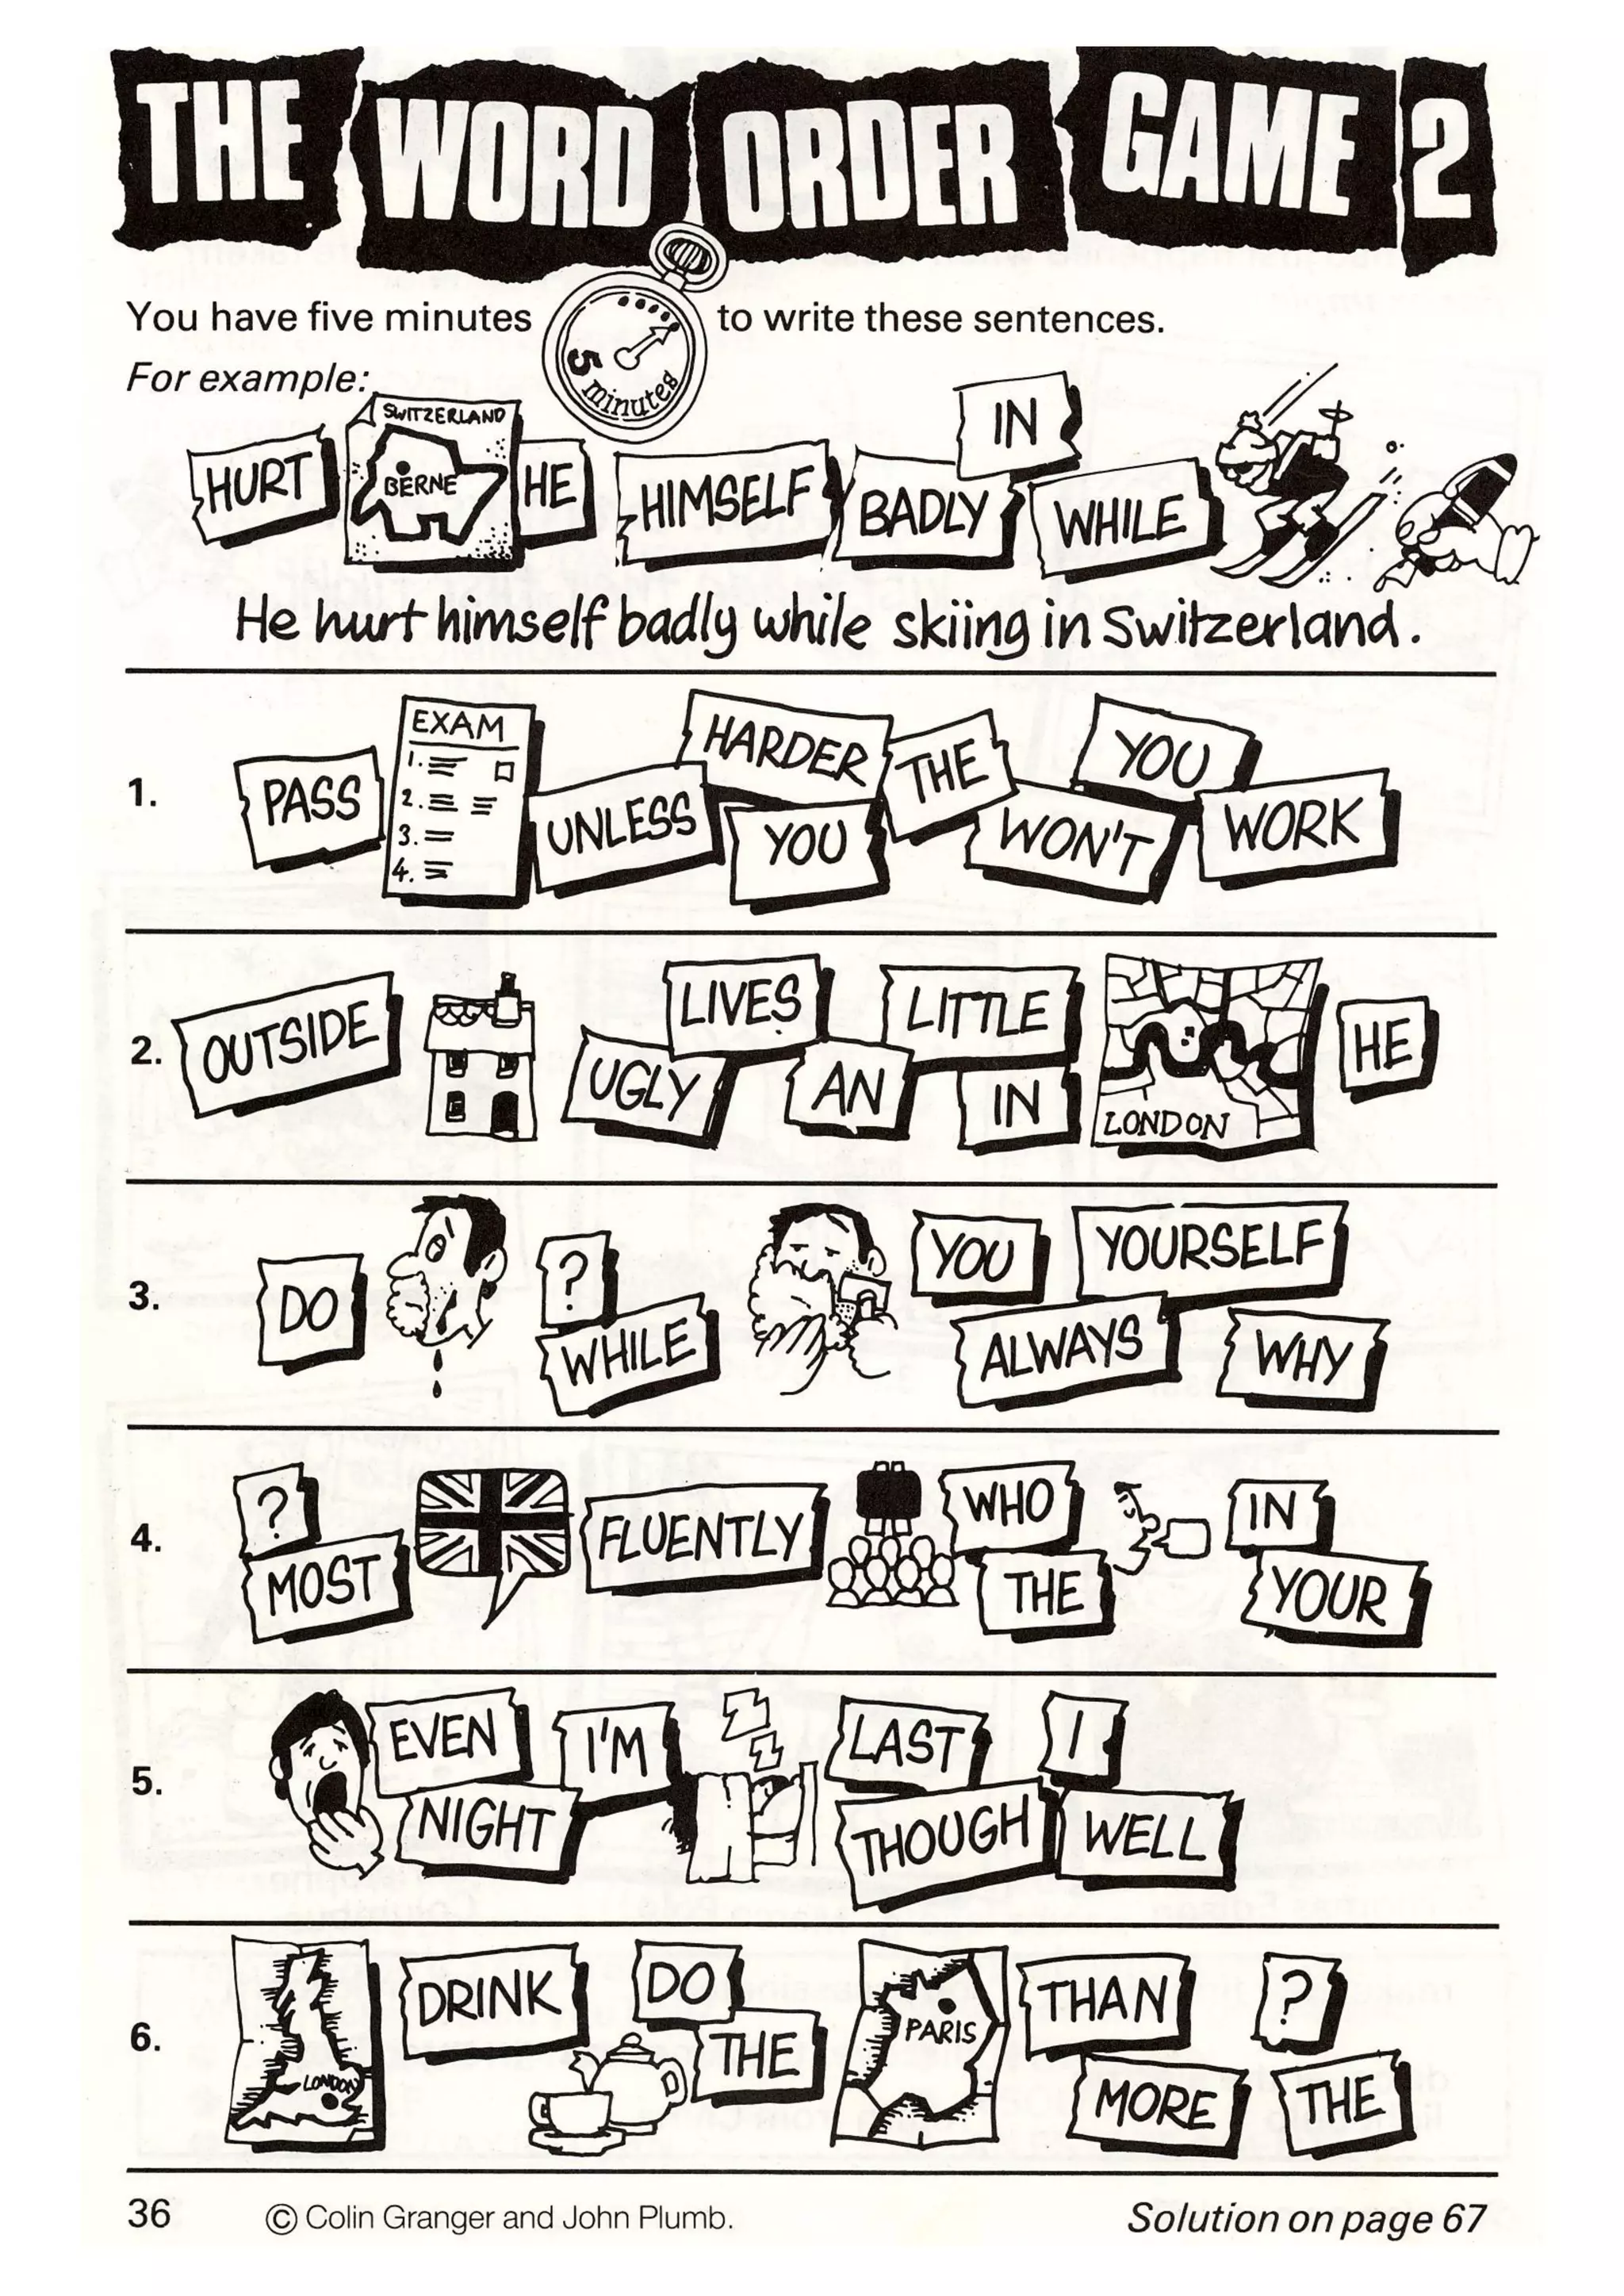 THE WORD ORDER GAME 2
You have five minutes to write these sentences.
5 minutes
For example:
HURT SWITZERLAND BERNE HE HIMSELF BADLY IN WHILE
He hurt himself badly while skiing in Switzerland.
1. PASS EXAM 1. 2. 3. 4. UNLESS HARDER YOU THE WON'T YOU WORK
2. OUTSIDE UGLY LIVES AN LITTLE IN LONDON HE
3. DO ? WHILE YOU YOURSELF ALWAYS WHY
4. ? MOST FLUENTLY WHO THE IN YOUR
5. EVEN NIGHT I'M Z Z LAST THOUGH I WELL
6. LONDON DRINK DO THE PARIS THAN MORE ? THE
36 © Colin Granger and John Plumb. Solution on page 67